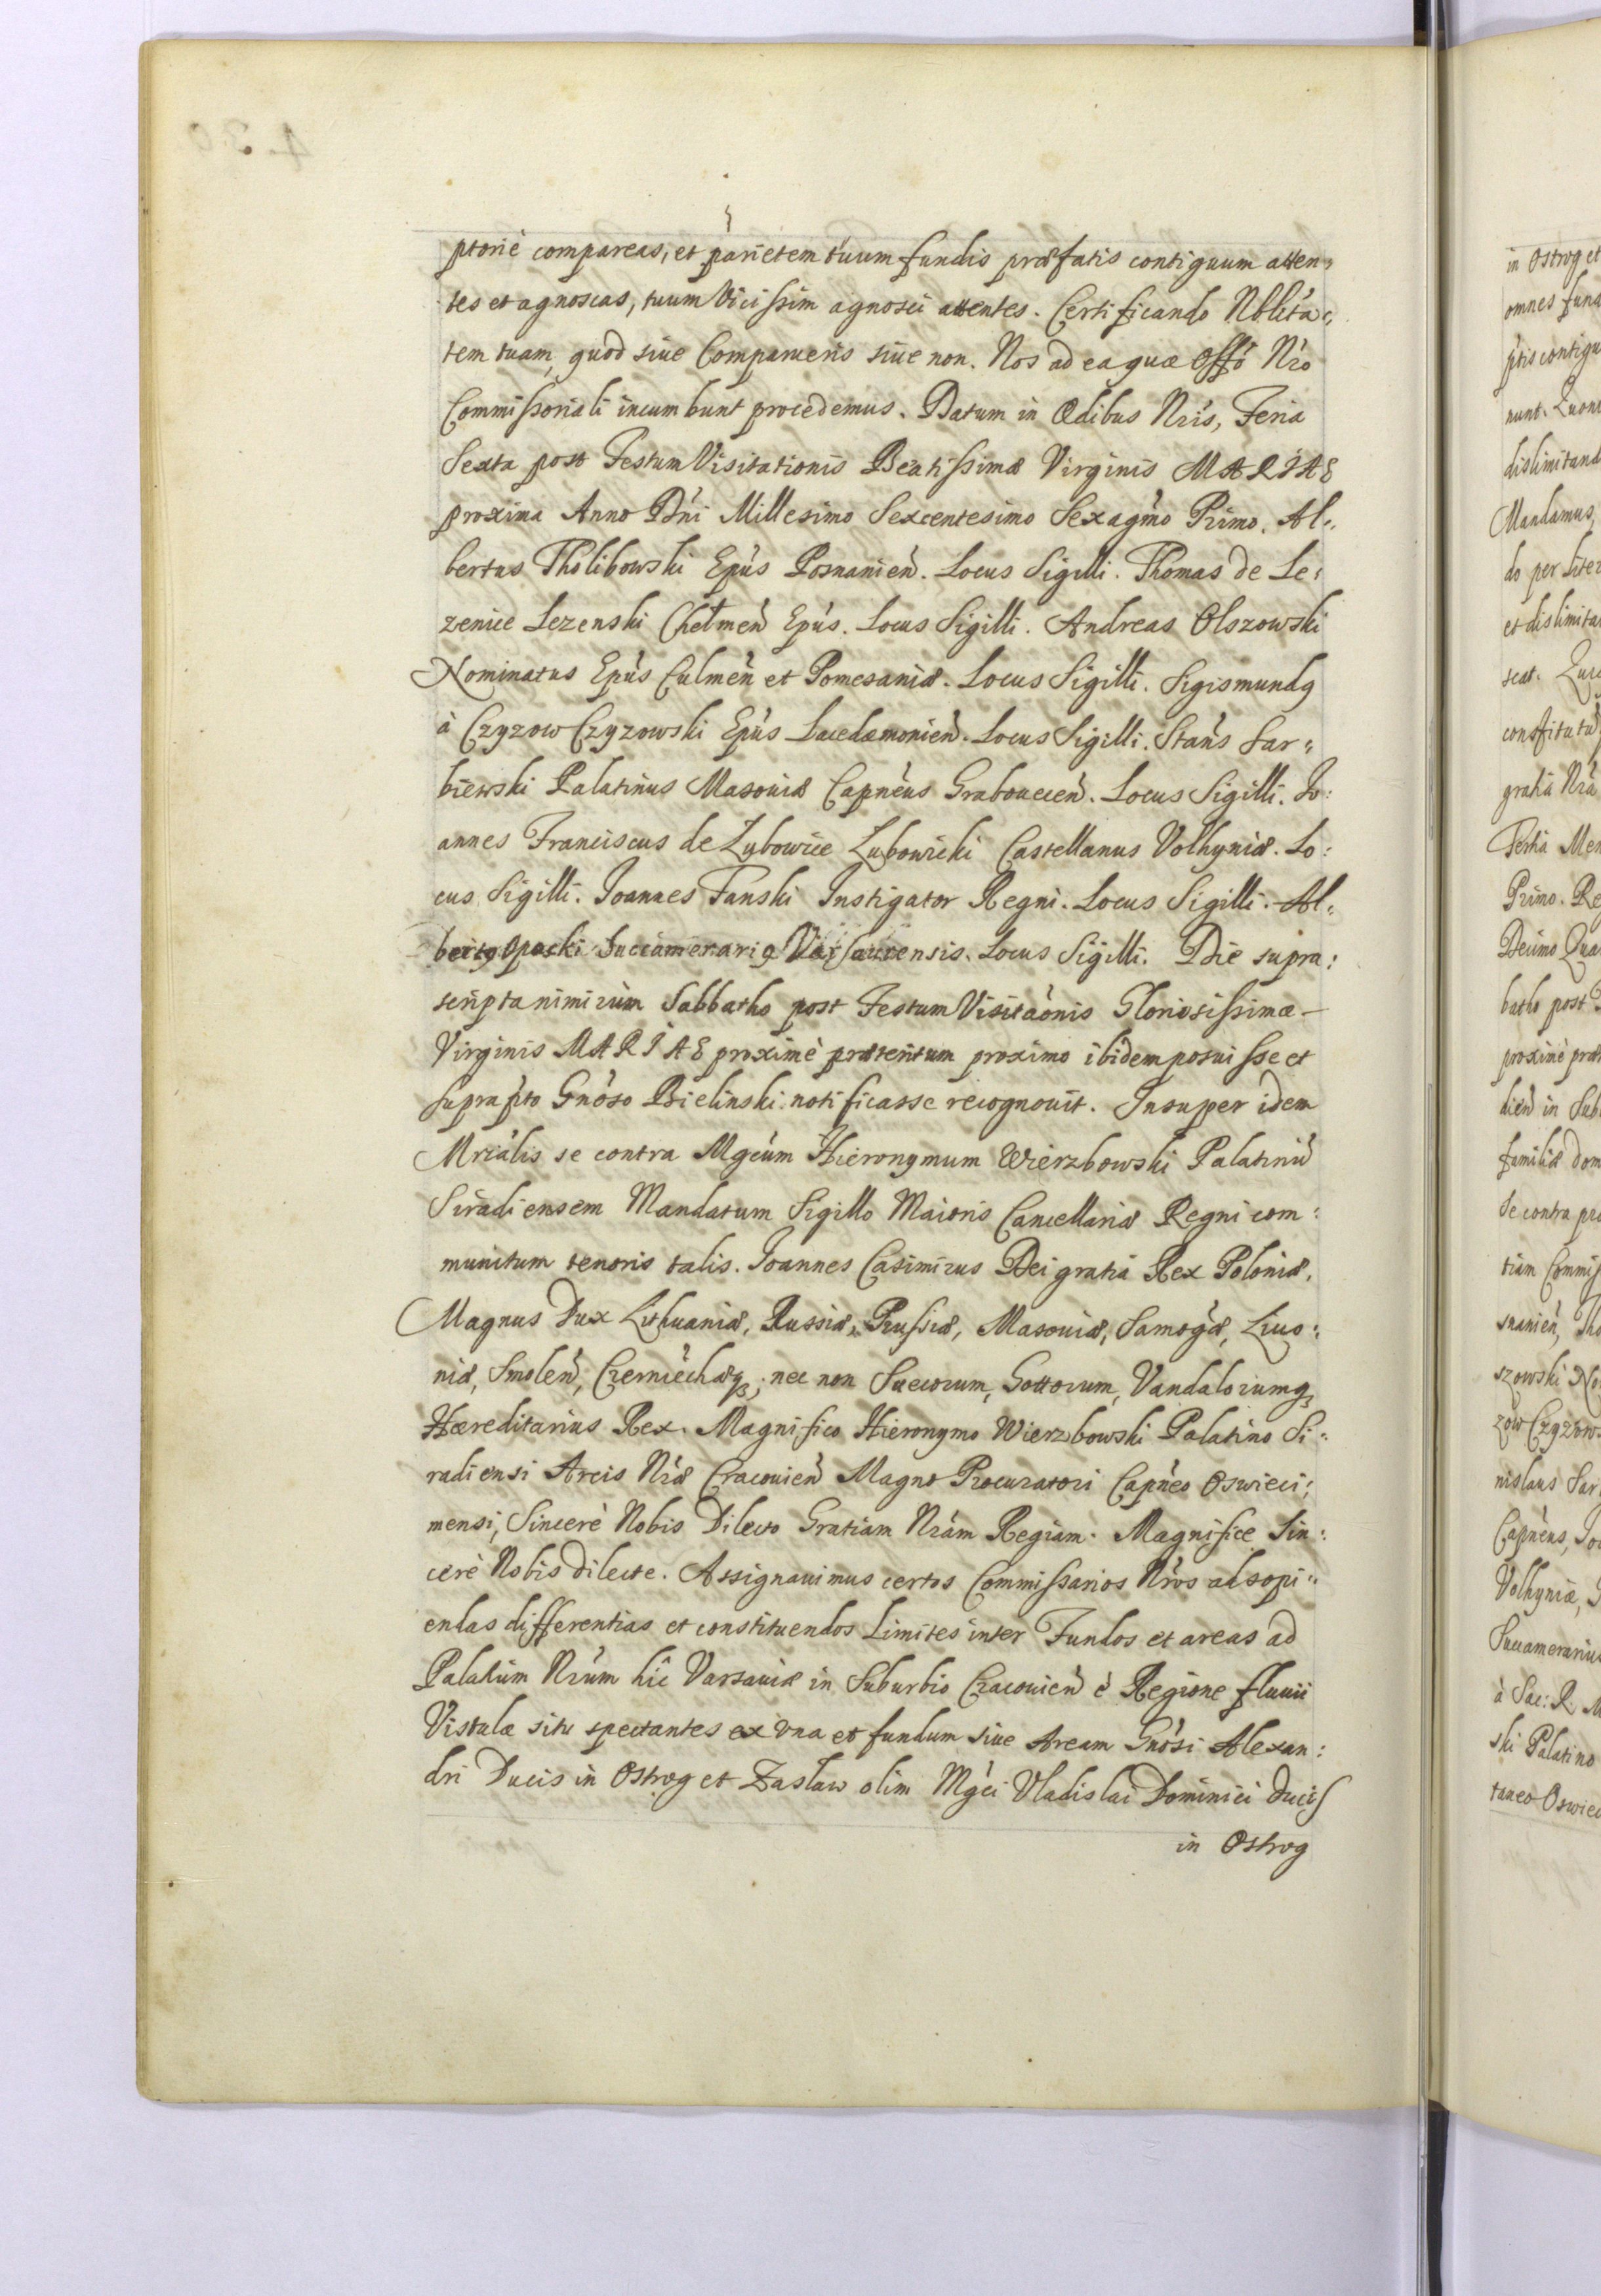 ptorie compareas, et parietem tuum fundis præfatis contiguum atten„
tes et agnoscas, tuum Vicissim agnosci attentes. Certificando Nblita„
tem tuam, quod siue Comparueris siue non. Nos ad ea quæ Offo Nro
Commissoriali incumbunt procedemus. Datum in Ædibus Nris, Feria
Sexta post Festum Visitationis Beatissimæ Virginis MARIAE
proxima Anno Dni Millesimo Sexcentesimo Sexagmo Primo. Al„
bertus Tholibowski Epus Posnanien. Locus Sigilli. Thomas de Le„
zenice Lezenski Chełmen Epus. Locus Sigilli. Andreas Olszowski
Nominatus Epus Culmen et Pomesaniæ. Locus Sigilli. Sigismundq
à Czyzow Czyzowski Epus Lacedæmonien. Locus Sigilli. Stans Sar„
biewski Palatinus Masoviæ Capneus Grabouecen. Locus Sigilli. Jo:
annes Franciscus de Lubowice Lubowicki Castellanus Volhyniæ. Lo:
cus Sigilli. Joannes Tanski Instigator Regni. Locus Sigilli. Al„
bertq Opacki Succamerariq Varsauiensis. Locus Sigilli. Die supra:
scripta nimirum Sabbatho post Festum Visitaonis Gloriosissimæ —
Virginis MARIAE proximè præteritum proximo ibidem posuisse et
suprapto Gnoso Bielinski notificasse recognouit. Insuper idem
Mrialis se contra Mgcum Hieronymum Wierzbowski Palatinu
Siradiensem Mandatum Sigillo Maioris Cancellariæ Regni com:
munitum tenoris talis. Joannes Casimirus Dei gratia Rex Poloniæ,
Magnus Dux Lithuaniæ, Russiæ, Prussiæ, Masouiæ, Samogæ, Liuo:
niæ, Smolen, Czerniechæq, nec non Suecorum, Gottorum, Vandalorumq
Hæreditarius Rex. Magnifico Hieronymo Wierzbowski Palatino Si:
radiensi Arcis Nræ Cracouien Magno Procuratori Capneo Oswieci:
mensi, Sincerè Nobis Dilecto Gratiam Nram Regiam. Magnifice Sin:
cerè Nobis dilecte. Assignauimus certos Commissarios Nros ad sopi„
endas differentias et constituendos Limites inter Fundos et areas ad
Palatium Nrum hîc Varsauiæ in Suburbio Cracouien è Regione fluuii
Vistulæ situ spectantes ex vna et fundum siue Aream Gnosi Alexan:
dri Ducis in Ostrog et Zasław olim Mgci Vladislai Dominici Ducis
in Ostrog
in Ostrog et
omnes fund
ptis contigu
nunt.
dislimitand
Mandamus,
do per Liter
et dislimita
scat.
constitutu
gratia Nra
Tertia Men
Primo. Re
Decimo Qua
batho post
proximè præ
dien in Sub
familiæ dom
se contra pr
tiam Commis
snanien, Tho
szowski No
zow Czyzows
nislaus Sar
Capneus, Jo
Volhyniæ, J
Succamerarius
à Sac: R. M
ski Palatino
taneo Oswiec
430